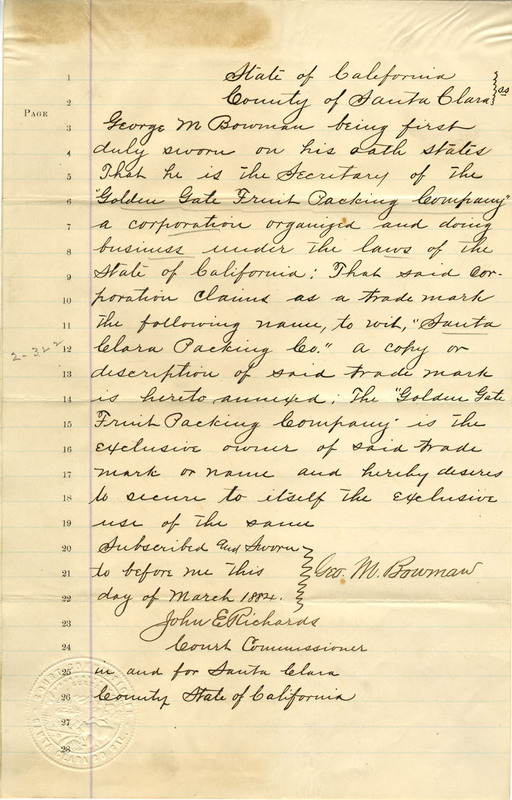 State of California
County of Santa Clara } ss
PAGE
George M Bowman being first
duly sworn on his oath states
That he is the Secretary of the
"Golden Gate Fruit Packing Company"
a corporation organized and doing
business under the laws of the
State of California: That said Cor-
poration Claims as a trade mark
the following name, to wit, "Santa
Clara Packing Co." a copy or
description of said trade mark
is hereto annexed; The "Golden Gate
Fruit Packing Company" is the
exclusive owner of said trade
mark or name and hereby desires
to secure to itself the exclusive
use of the same
Subscribed and Sworn
to before me this } Geo. M. Bowman
day of March 1884.
John E Richards
Court Commissioner
in and for Santa Clara
County State of California
2-322
1
2
3
4
5
6
7
8
9
10
11
12
13
14
15
16
17
18
19
20
21
22
23
24
25
26
27
28